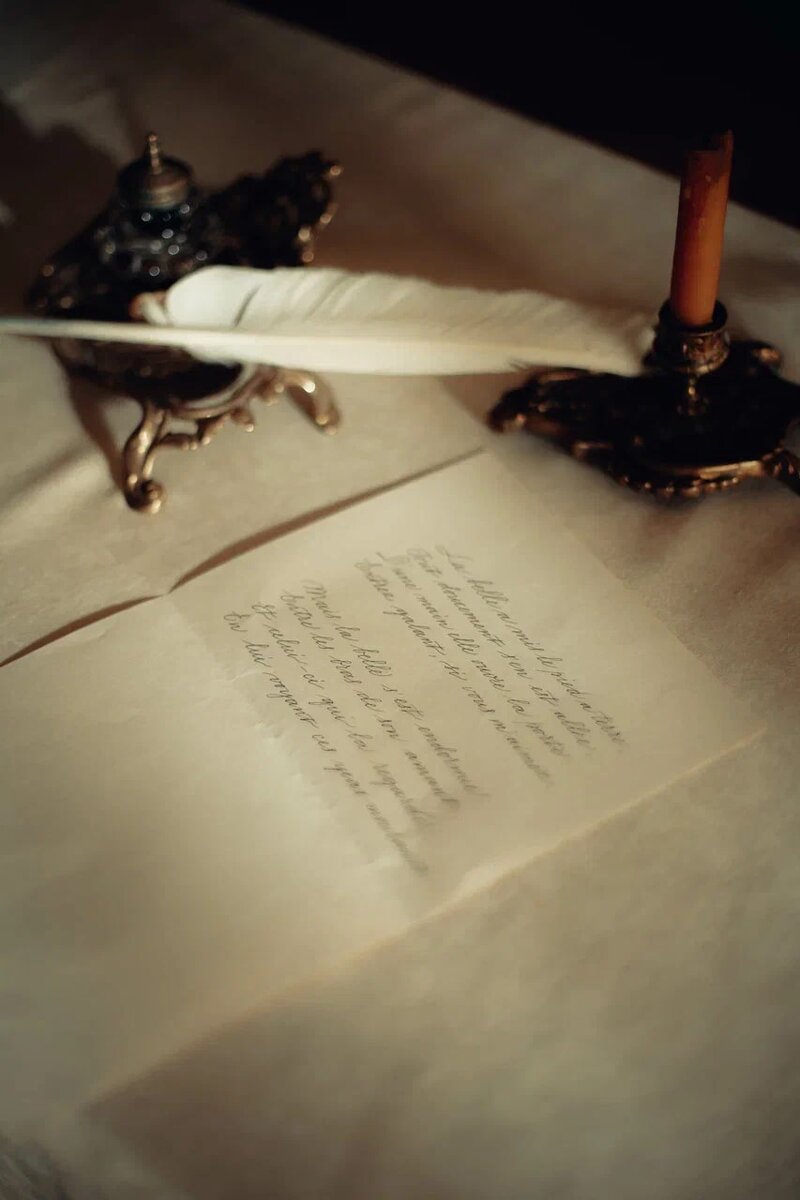 La belle a mis le pied à terre
Tout doucement s'en est allée.
D'une main elle ouvre la porte
Entrez galant, si vous m'aimez.
Mais la belle s'est endormie
Entre les bras de son amant
Et celui-ci qui la regarde
En lui voyant ces yeux mourants